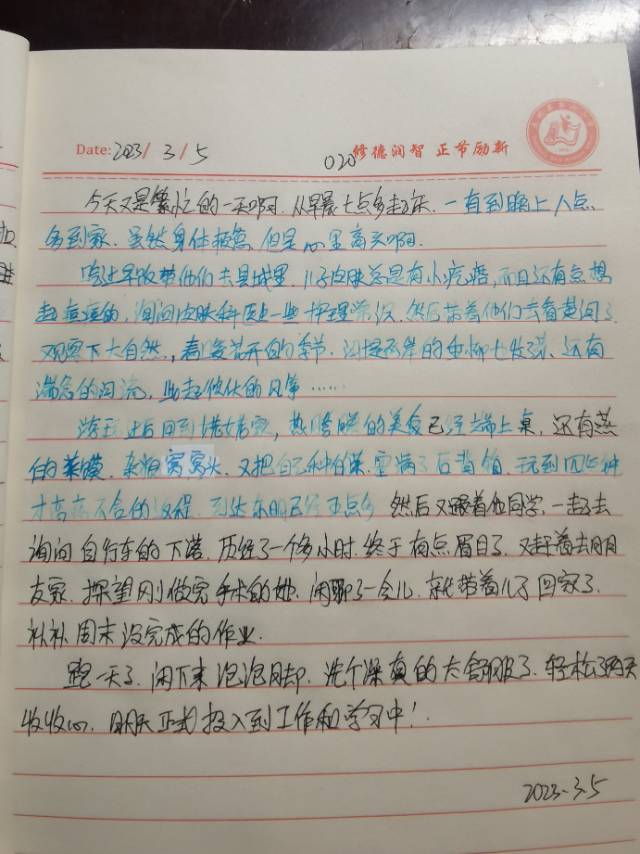 Date: 2023/3/5 020 修德润智 正节励新
今天又是繁忙的一天啊.从早晨七点多起床.一直到晚上八点
多到家.虽然身体疲惫.但是心里高兴啊.
吃过早饭带他们去县城里.儿子皮肤总是有小疙瘩,而且还有点想
起痘痘的,询问皮肤科医生一些护理常识.然后带着他们去看黄河了
观察下大自然,春暖花开的季节.河堤两岸的垂柳七吐了芽.还有
湍急的河流,此起彼伏的风筝……
回到 家,热腾腾的美食已经端上桌,还有蒸
的菜馍.杂粮窝窝头.又把自己种的菜.塞满了后背箱.玩到四点钟
才恋恋不舍的 程.到达 已经五点多 然后又跟着他同学.一起去
询问自行车的下落.历经了一个多小时.终于有点眉目了.又赶着去朋
友家.探望刚做完手术的她.闲聊了一会儿.就带着儿子回家了.
补补周末没完成的作业.
跑一天了.闲下来泡泡脚.洗个澡真的太舒服了.轻松了两天
收收心.明天正式投入到工作和学习中!
2023-3.5